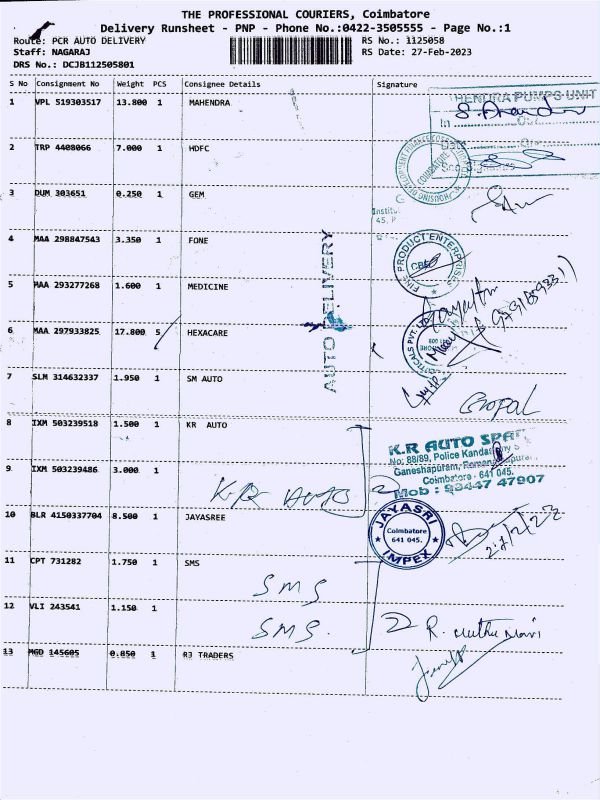 THE PROFESSIONAL COURIERS, Coimbatore
Delivery Runsheet - PNP - Phone No.:0422-3505555 - Page No.:1
Route: PCR AUTO DELIVERY
RS No.: 1125058
Staff: NAGARAJ
RS Date: 27-Feb-2023
DRS No.: DCJB112505801
S No Consignment No Weight PCS Consignee Details Signature
1 VPL 519303517 13.800 1 MAHENDRA
2 TRP 4408066 7.000 1 HDFC
3 DUM 303651 0.250 1 GEM
4 MAA 298847543 3.350 1 FONE
5 MAA 293277268 1.600 1 MEDICINE
6 MAA 297933825 17.800 5 HEXACARE
7 SLM 314632337 1.950 1 SM AUTO
8 IXM 503239518 1.500 1 KR AUTO
9 IXM 503239486 3.000 1
KR AUTO 2
10 BLR 4150337704 8.500 1 JAYASREE
11 CPT 731282 1.750 1 SMS
SMS
12 VLI 243541 1.150 1
SMS. 2
13 MGD 145605 0.850 1 RJ TRADERS
AUTO DELIVERY
HENDRA PUMPS UNIT
In
Date
COIMBATORE
Institu
45, P
FINE PRODUCT ENTERPRISES
CBE
Gopal
K.R AUTO SPA
No: 88/89, Police Kanda
Ganeshapuram,
Coimbatore - 641 045.
Mob : 98447 47907
JAYASRI
Coimbatore
641 045.
IMPEX
R. Muthu Mari